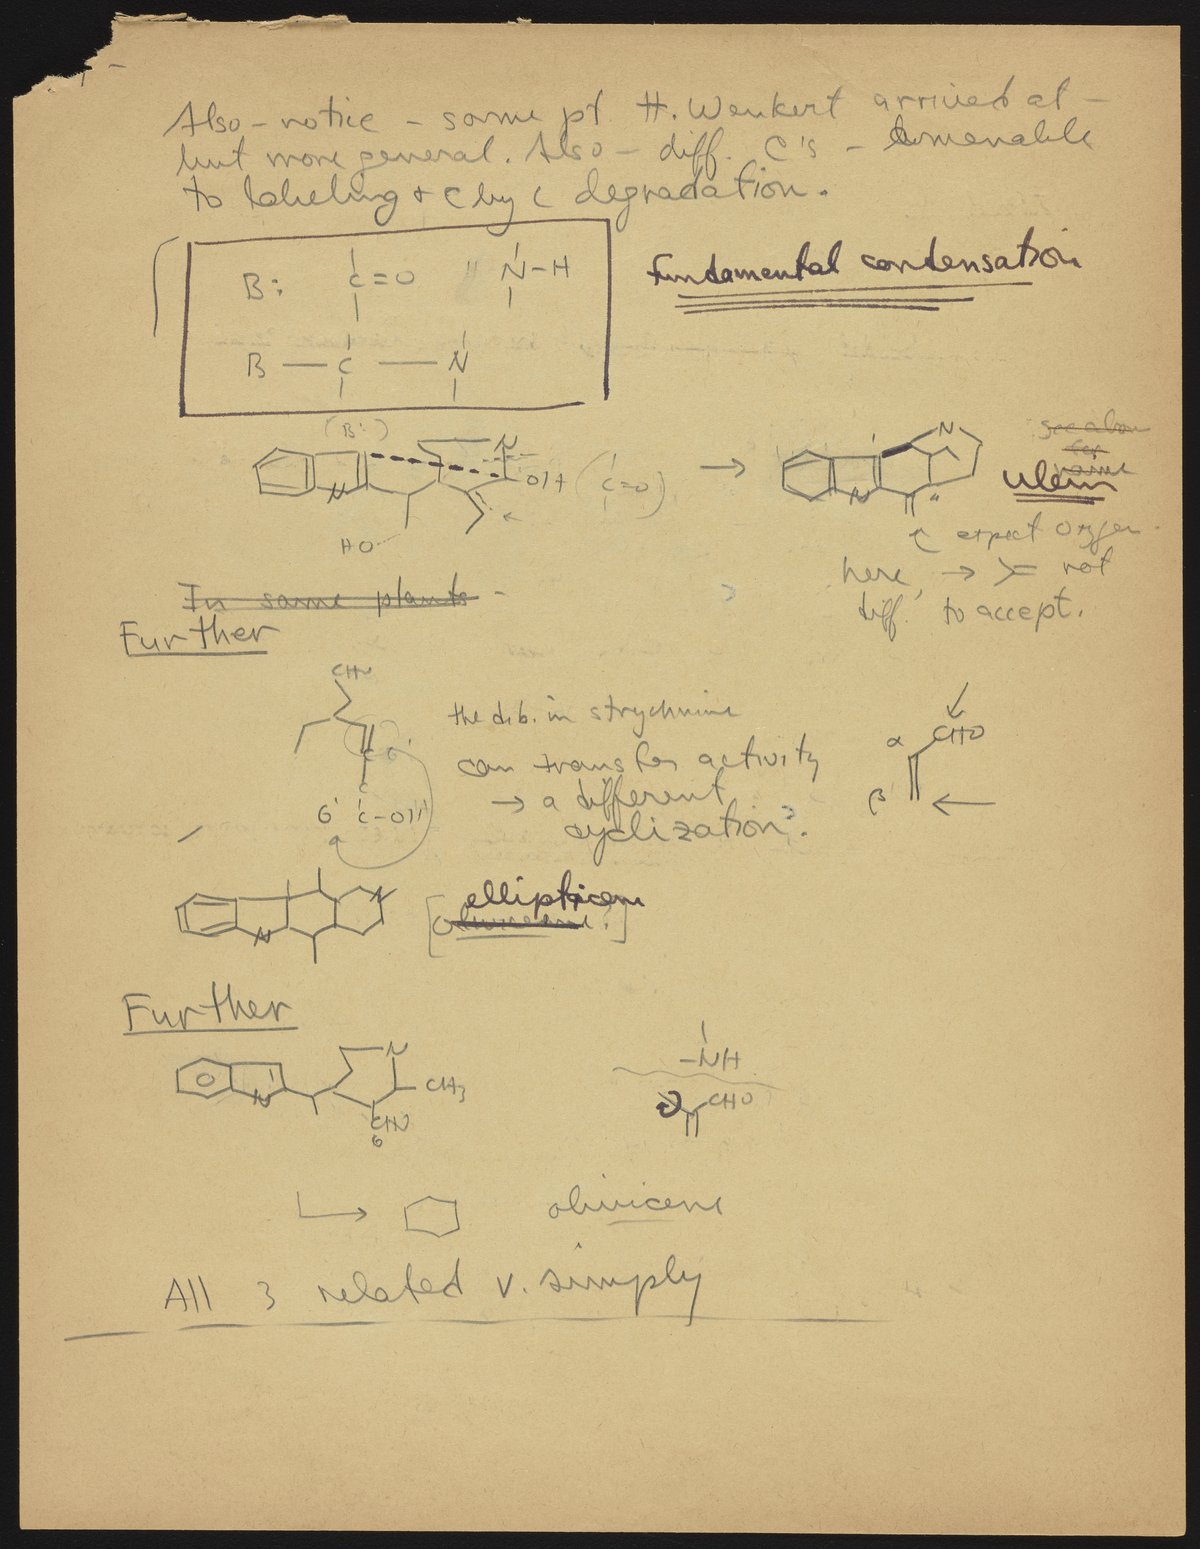 Also - notice - same pt. H. Wenkert arrived at -
but more general. Also - diff. C's - amenable
to labeling + C by C degradation.
B: C=O N-H
Fundamental condensation
B — C — N
(B:)
N
N
OH (C=O) →
N
N
see above
for
name
Ulein
HO
expect oxygen
here, → = not
diff. to accept.
In same plants -
Further
CHO
the dib. in strychnine
can transfer activity
→ a different
cyclization?
C 6'
C
6' C-OH
α CHO
β
N
N
ellipticene
Further
N
N
CH3
CHO
6
-NH
CHO
olivicene
All 3 related v. simply